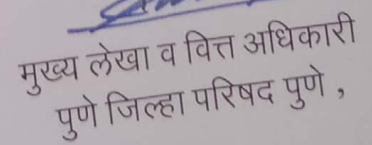 मुख्य लेखा व वित्त अधिकारी
पुणे जिल्हा परिषद पुणे ,